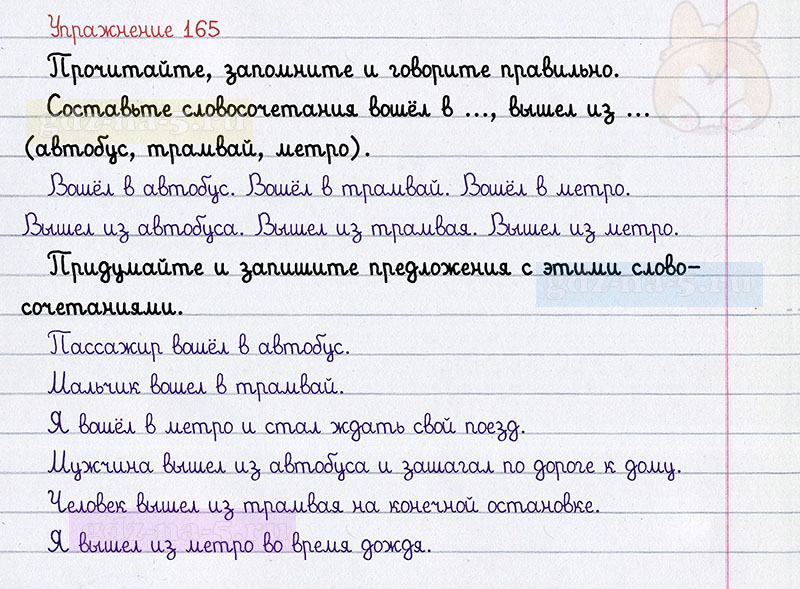 Упражнение 165
Прочитайте, запомните и говорите правильно.
Составьте словосочетания вошёл в ..., вышел из ...
(автобус, трамвай, метро).
Вошёл в автобус. Вошёл в трамвай. Вошёл в метро.
Вышел из автобуса. Вышел из трамвая. Вышел из метро.
Придумайте и запишите предложения с этими слово-
сочетаниями.
Пассажир вошёл в автобус.
Мальчик вошел в трамвай.
Я вошёл в метро и стал ждать свой поезд.
Мужчина вышел из автобуса и зашагал по дороге к дому.
Человек вышел из трамвая на конечной остановке.
Я вышел из метро во время дождя.
gdz-na-5.ru
gdz-na-5.ru
gdz-na-5.ru